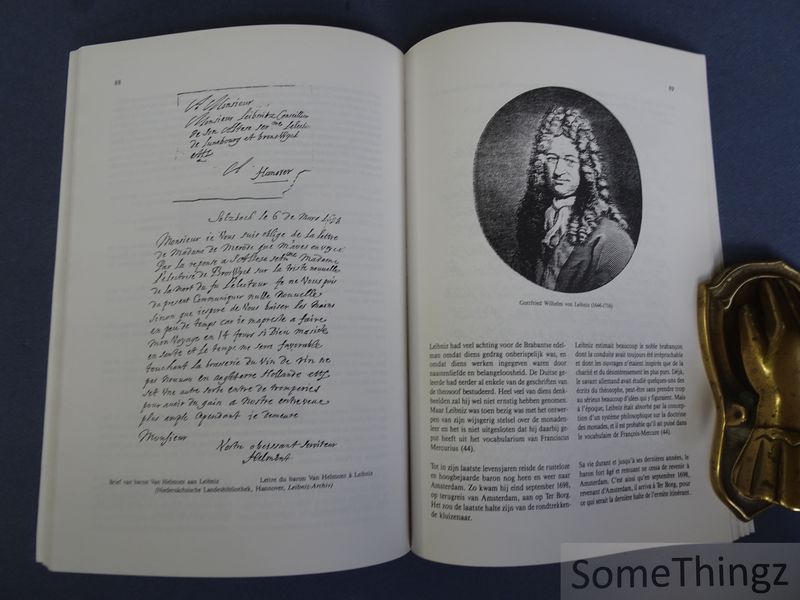 88
A Monsieur
Monsieur Leibnitz Conseillier
de son Altese ser.me
de Lunebourg et
A
Hanover
Solzbach le 6 de Mars
Monsieur ie Vous suis oblige de la lettre
de Madame de Merode que
Par la reponse a Madame
sur la triste nouvelle
de la mort du fu l'electeur Je ne Vous puis
du present Communiquer nulle nouvelle
sinon que iespere de Vous baiser les mains
en peu de temps car ie a faire
mon Voyage en 14 Jours si Dieu
en sente et Le temps me sera favorable
touchant la brasserie du Vin de
pas nouveau en Hollande
une autre sorte entre de tromperies
pour avoir du gain a Nostre entreveue
plus ample Cependant je demeure
Monsieur
Vostre obeissant serviteur
Helmont
Brief van baron Van Helmont aan Leibniz
Lettre du baron Van Helmont à Leibniz
(Niedersächsische Landesbibliothek, Hannover, Leibniz-Archiv)
89
Gottfried Wilhelm von Leibniz (1646-1716)
Leibniz had veel achting voor de Brabantse edel-
man omdat diens gedrag onberispelijk was, en
omdat diens werken ingegeven waren door
naastenliefde en belangeloosheid. De Duitse ge-
leerde had eerder al enkele van de geschriften van
de theosoof bestudeerd. Heel veel van diens denk-
beelden zal hij wel niet ernstig hebben genomen.
Maar Leibniz was toen bezig was met het ontwer-
pen van zijn wijsgerig stelsel over de monaden-
leer en het is niet uitgesloten dat hij daarbij ge-
put heeft uit het vocabularium van Franciscus
Mercurius (44).
Tot in zijn laatste levensjaren reisde de rusteloze
en hoogbejaarde baron nog heen en weer naar
Amsterdam. Zo kwam hij eind september 1698,
op terugreis van Amsterdam, aan op Ter Borg.
Het zou de laatste halte zijn van de rondtrekken-
de kluizenaar.
Leibniz estimait beaucoup le noble brabançon,
dont la conduite avait toujours été irréprochable
et dont les ouvrages n'étaient inspirés que de la
charité et du désintéressement les plus purs. Déjà,
le savant allemand avait étudié quelques-uns des
écrits du théosophe, peut-être sans prendre trop
au sérieux beaucoup d'idées qui y figuraient. Mais
à l'époque, Leibniz était absorbé par la conception
d'un système philosophique sur la doctrine
des monades, et il est probable qu'il ait puisé dans
le vocabulaire de François-Mercure (44).
Sa vie durant et jusqu'à ses dernières années, le
baron fort âgé et remuant ne cessa de revenir à
Amsterdam. C'est ainsi qu'en septembre 1698,
revenant d'Amsterdam, il arriva à Ter Borg, pour
ce qui serait la dernière halte de l'ermite itinérant.
SomeThingz